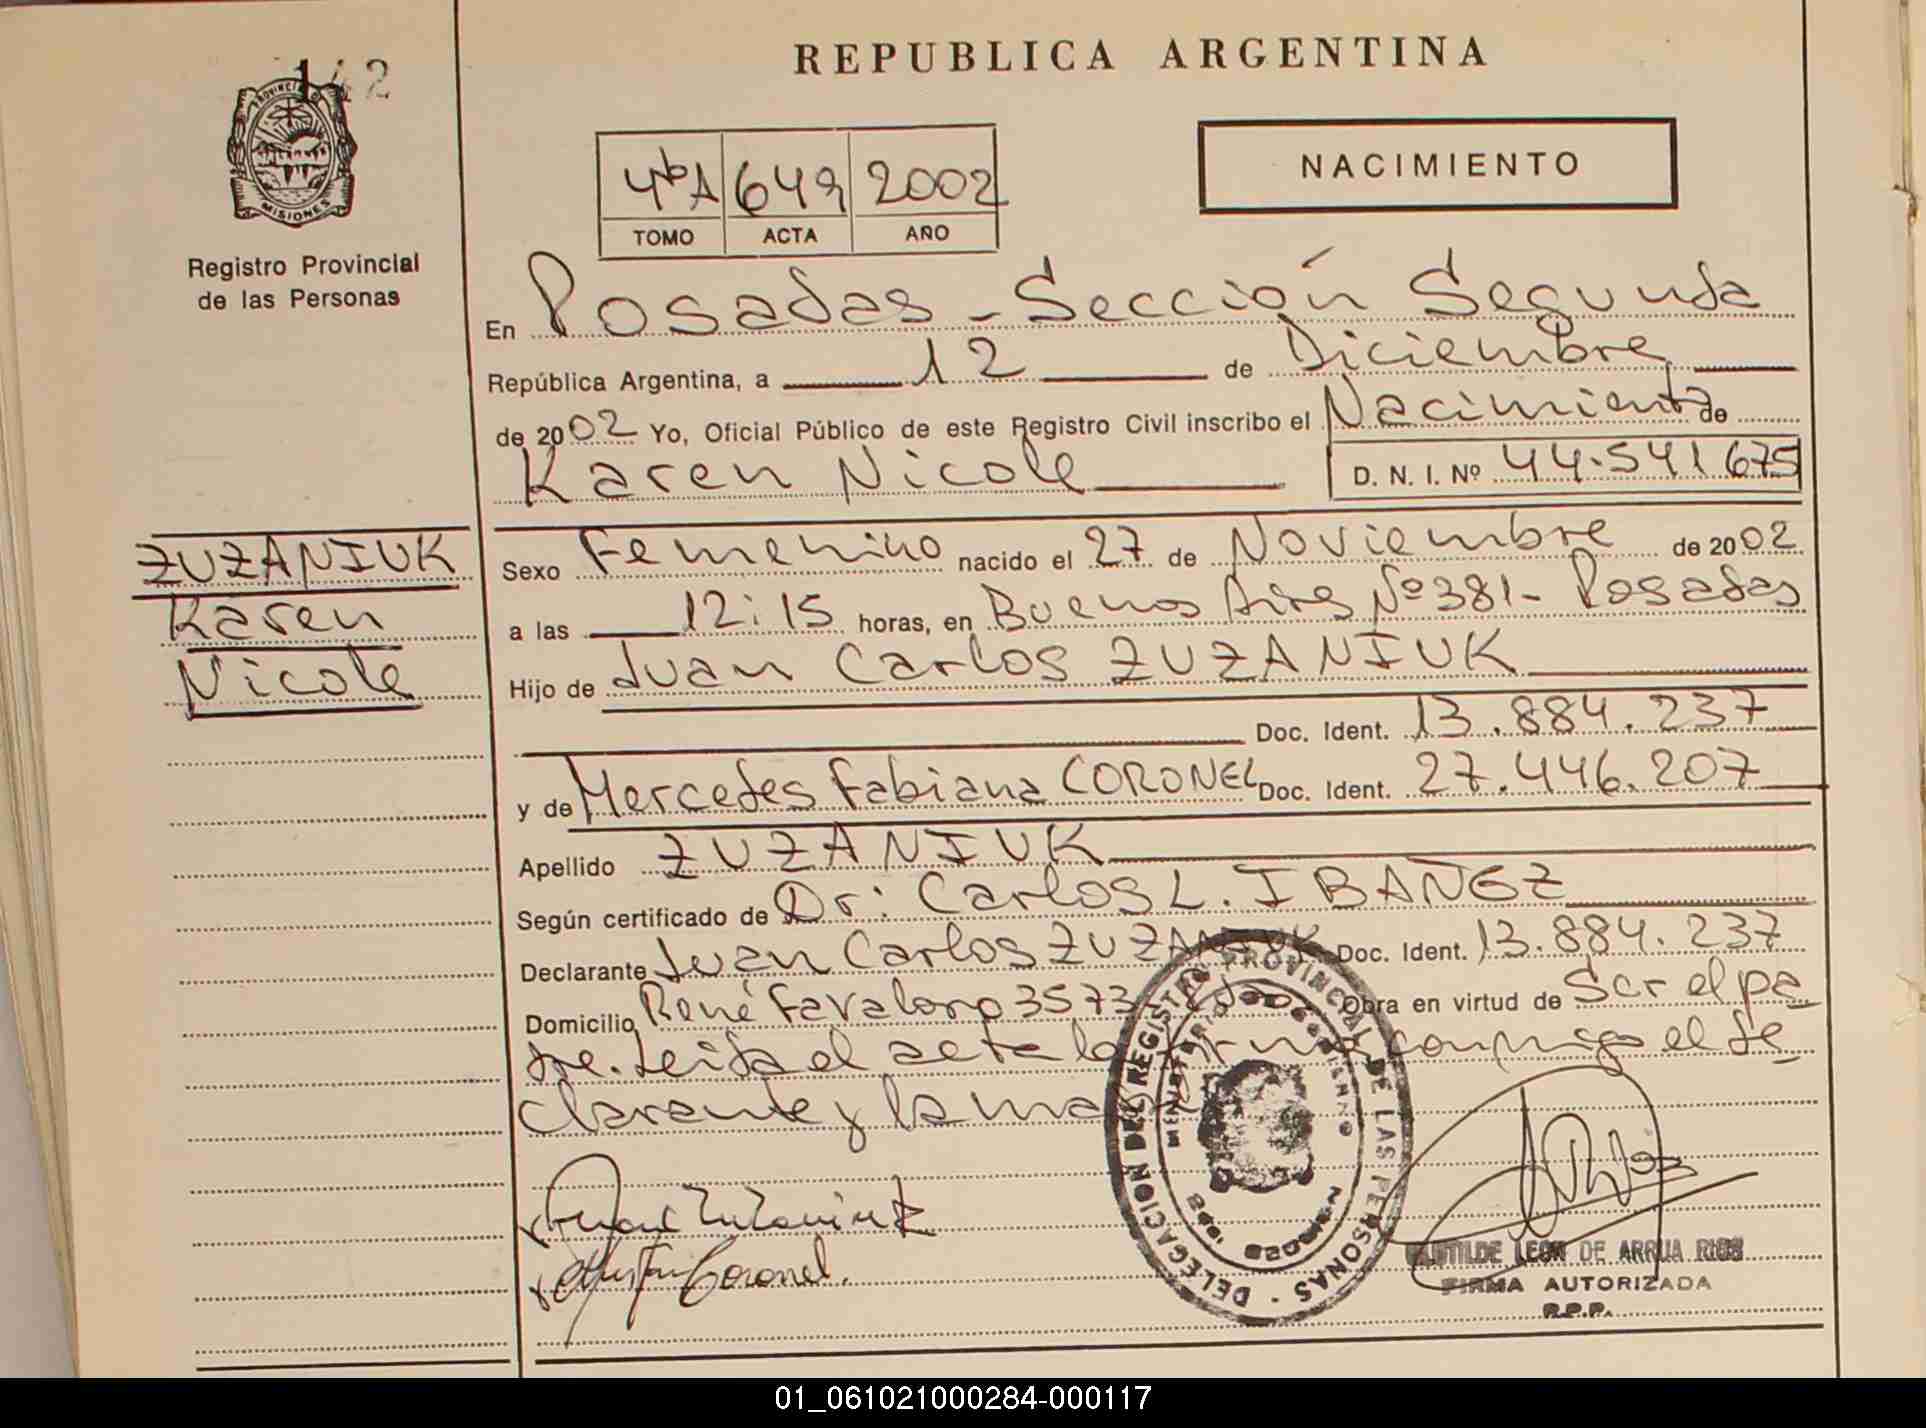 142
PROVINCIA D
MISIONES
Registro Provincial
de las Personas
REPUBLICA ARGENTINA
4ºbA 649 2002
TOMO ACTA AÑO
NACIMIENTO
En Posadas - Sección Segunda
República Argentina, a 12 de Diciembre
de 2002 Yo, Oficial Público de este Registro Civil inscribo el Nacimiento de
Karen Nicole D. N. I. Nº 44.541675
ZUZANIUK
Karen
Nicole
Sexo Femenino nacido el 27 de Noviembre de 2002
a las 12:15 horas, en Buenos Aires Nº 381- Posadas
Hijo de Juan Carlos ZUZANIUK
Doc. Ident. 13.884.237
y de Mercedes Fabiana CORONEL Doc. Ident. 27.446.207
Apellido ZUZANIUK
Según certificado de Dr: Carlos L. IBAÑEZ
Declarante Juan Carlos ZUZANIUK Doc. Ident. 13.884.237
Domicilio René Favaloro 3573- Obra en virtud de Ser el pa
dre. Leída el acta la firma conmigo el de
clarante y la madre
DELEGACION DEL REGISTRO PROVINCIAL DE LAS PERSONAS
MINISTERIO DE GOBIERNO
MISIONES
Coronel.
CLOTILDE LEON DE ARRUA RIOS
FIRMA AUTORIZADA
R.P.P.
01_061021000284-000117